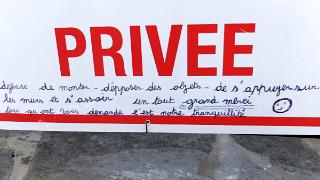 PRIVEE
défense de monter - dépposer des objets - de s'appuyer sur
les murs et s'assoir un tout grand merci
tous qu'ont vous demande c'est notre tranquillité